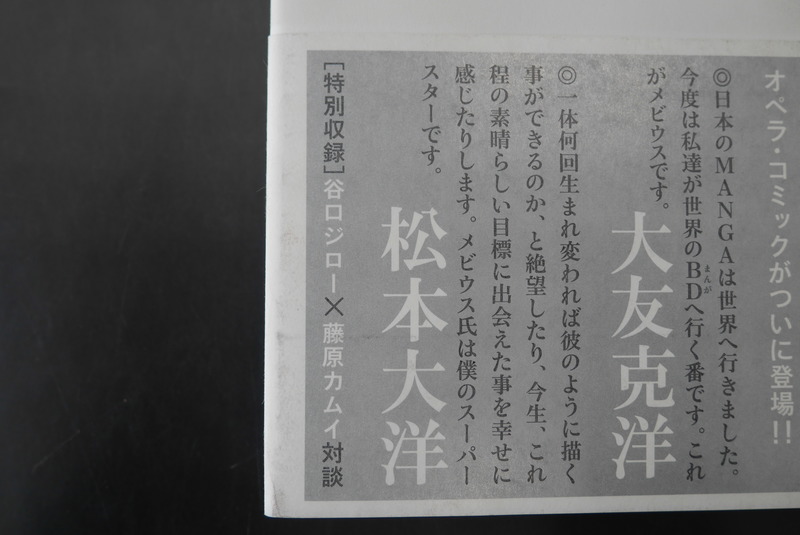 オペラ・コミックがついに登場!!
◎日本のMANGAは世界へ行きました。
今度は私達が世界のBDへ行く番です。これ
まんが
がメビウスです。
大友克洋
◎一体何回生まれ変われば彼のように描く
事ができるのか、と絶望したり、今生、これ
程の素晴らしい目標に出会えた事を幸せに
感じたりします。メビウス氏は僕のスーパー
スターです。
松本大洋
[特別収録]谷口ジロー×藤原カムイ対談